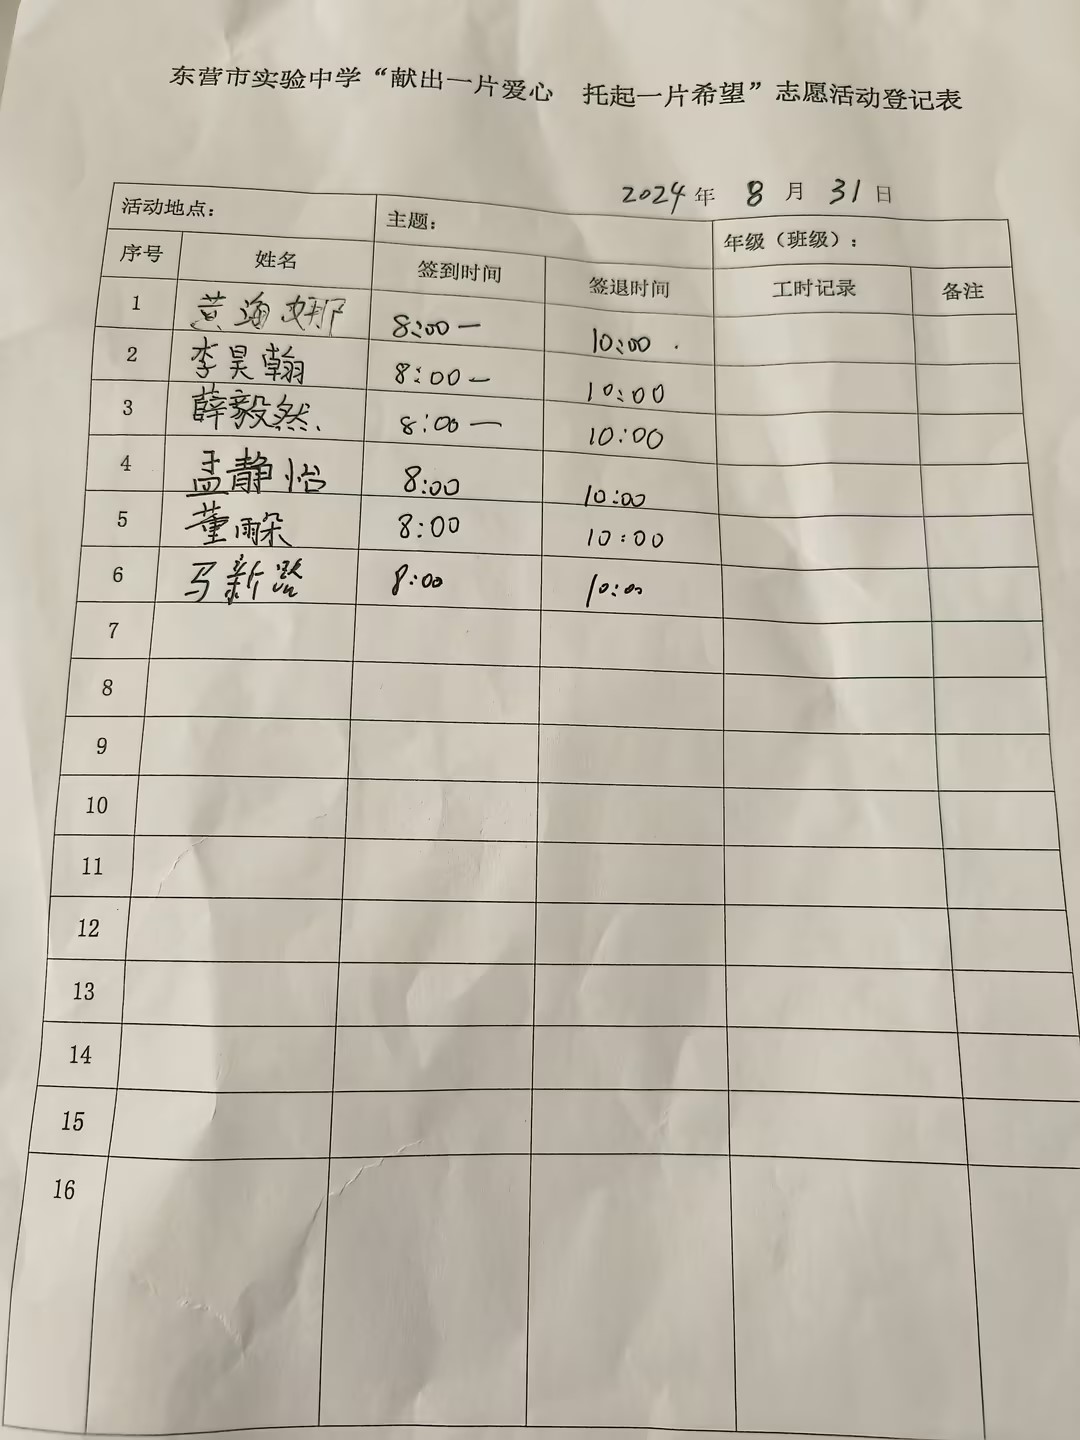 东营市实验中学“献出一片爱心 托起一片希望”志愿活动登记表
2024年 8月 31日
活动地点： 主题： 年级（班级）：
序号 姓名 签到时间 签退时间 工时记录 备注
1 黄海娜 8:00— 10:00
2 李昊翰 8:00— 10:00
3 薛毅然 8:00— 10:00
4 孟静怡 8:00 10:00
5 董雨朵 8:00 10:00
6 马新潞 8:00 10:00
7
8
9
10
11
12
13
14
15
16